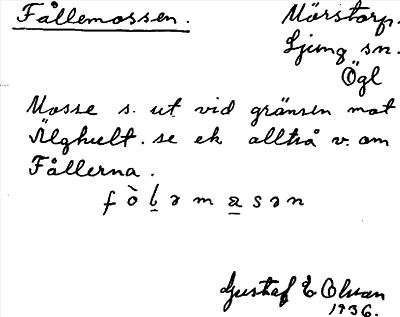 Fållemossen.
Mörstorp.
Ljung sn.
Ögl
Mosse s. ut vid gränsen mot
Älghult. se ek alltså v. om
Fållerna.
f ò l ə m a s ə n
Gustaf E Olsson
1936.